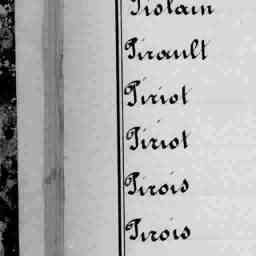 Piolain
Pirault
Piriot
Piriot
Pirois
Pirois